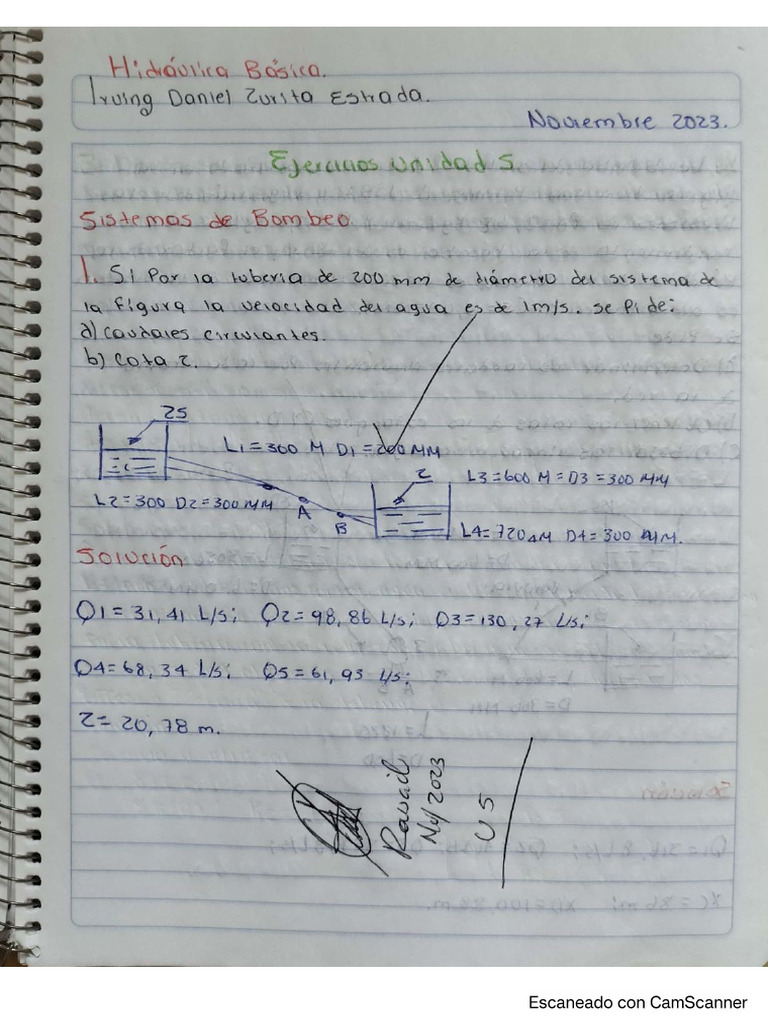 Hidráulica Básica.
Irving Daniel Zurita Estrada.
Noviembre 2023.
Ejercicios Unidad 5
Sistemas de Bombeo.
1. Si Por la tuberia de 200 mm de diámetro del sistema de
la figura la velocidad del agua es de 1m/s. se Pide:
a) caudales circulantes.
b) cota z.
25
L1=300 M D1=200MM
Z
L3=600 M=D3=300MM
L2=300 D2=300MM
A
B
L4=720 D4=300 MM.
Solución
Q1=31,41 L/s; Q2=98,86 L/s; Q3=130,27 L/s;
Q4=68,34 L/s; Q5=61,93 L/s;
z=20,78 m.
2023
U5
Escaneado con CamScanner